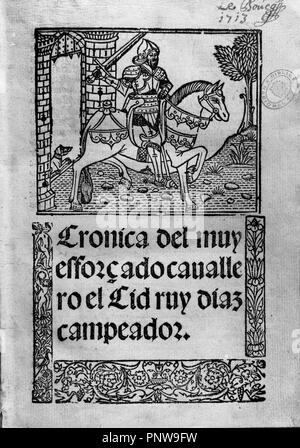 1713
Cronica del muy
efforçado cavalle
ro el Cid ruy diaz
campeador.
alamy
Image ID: PNW9FW
www.alamy.com